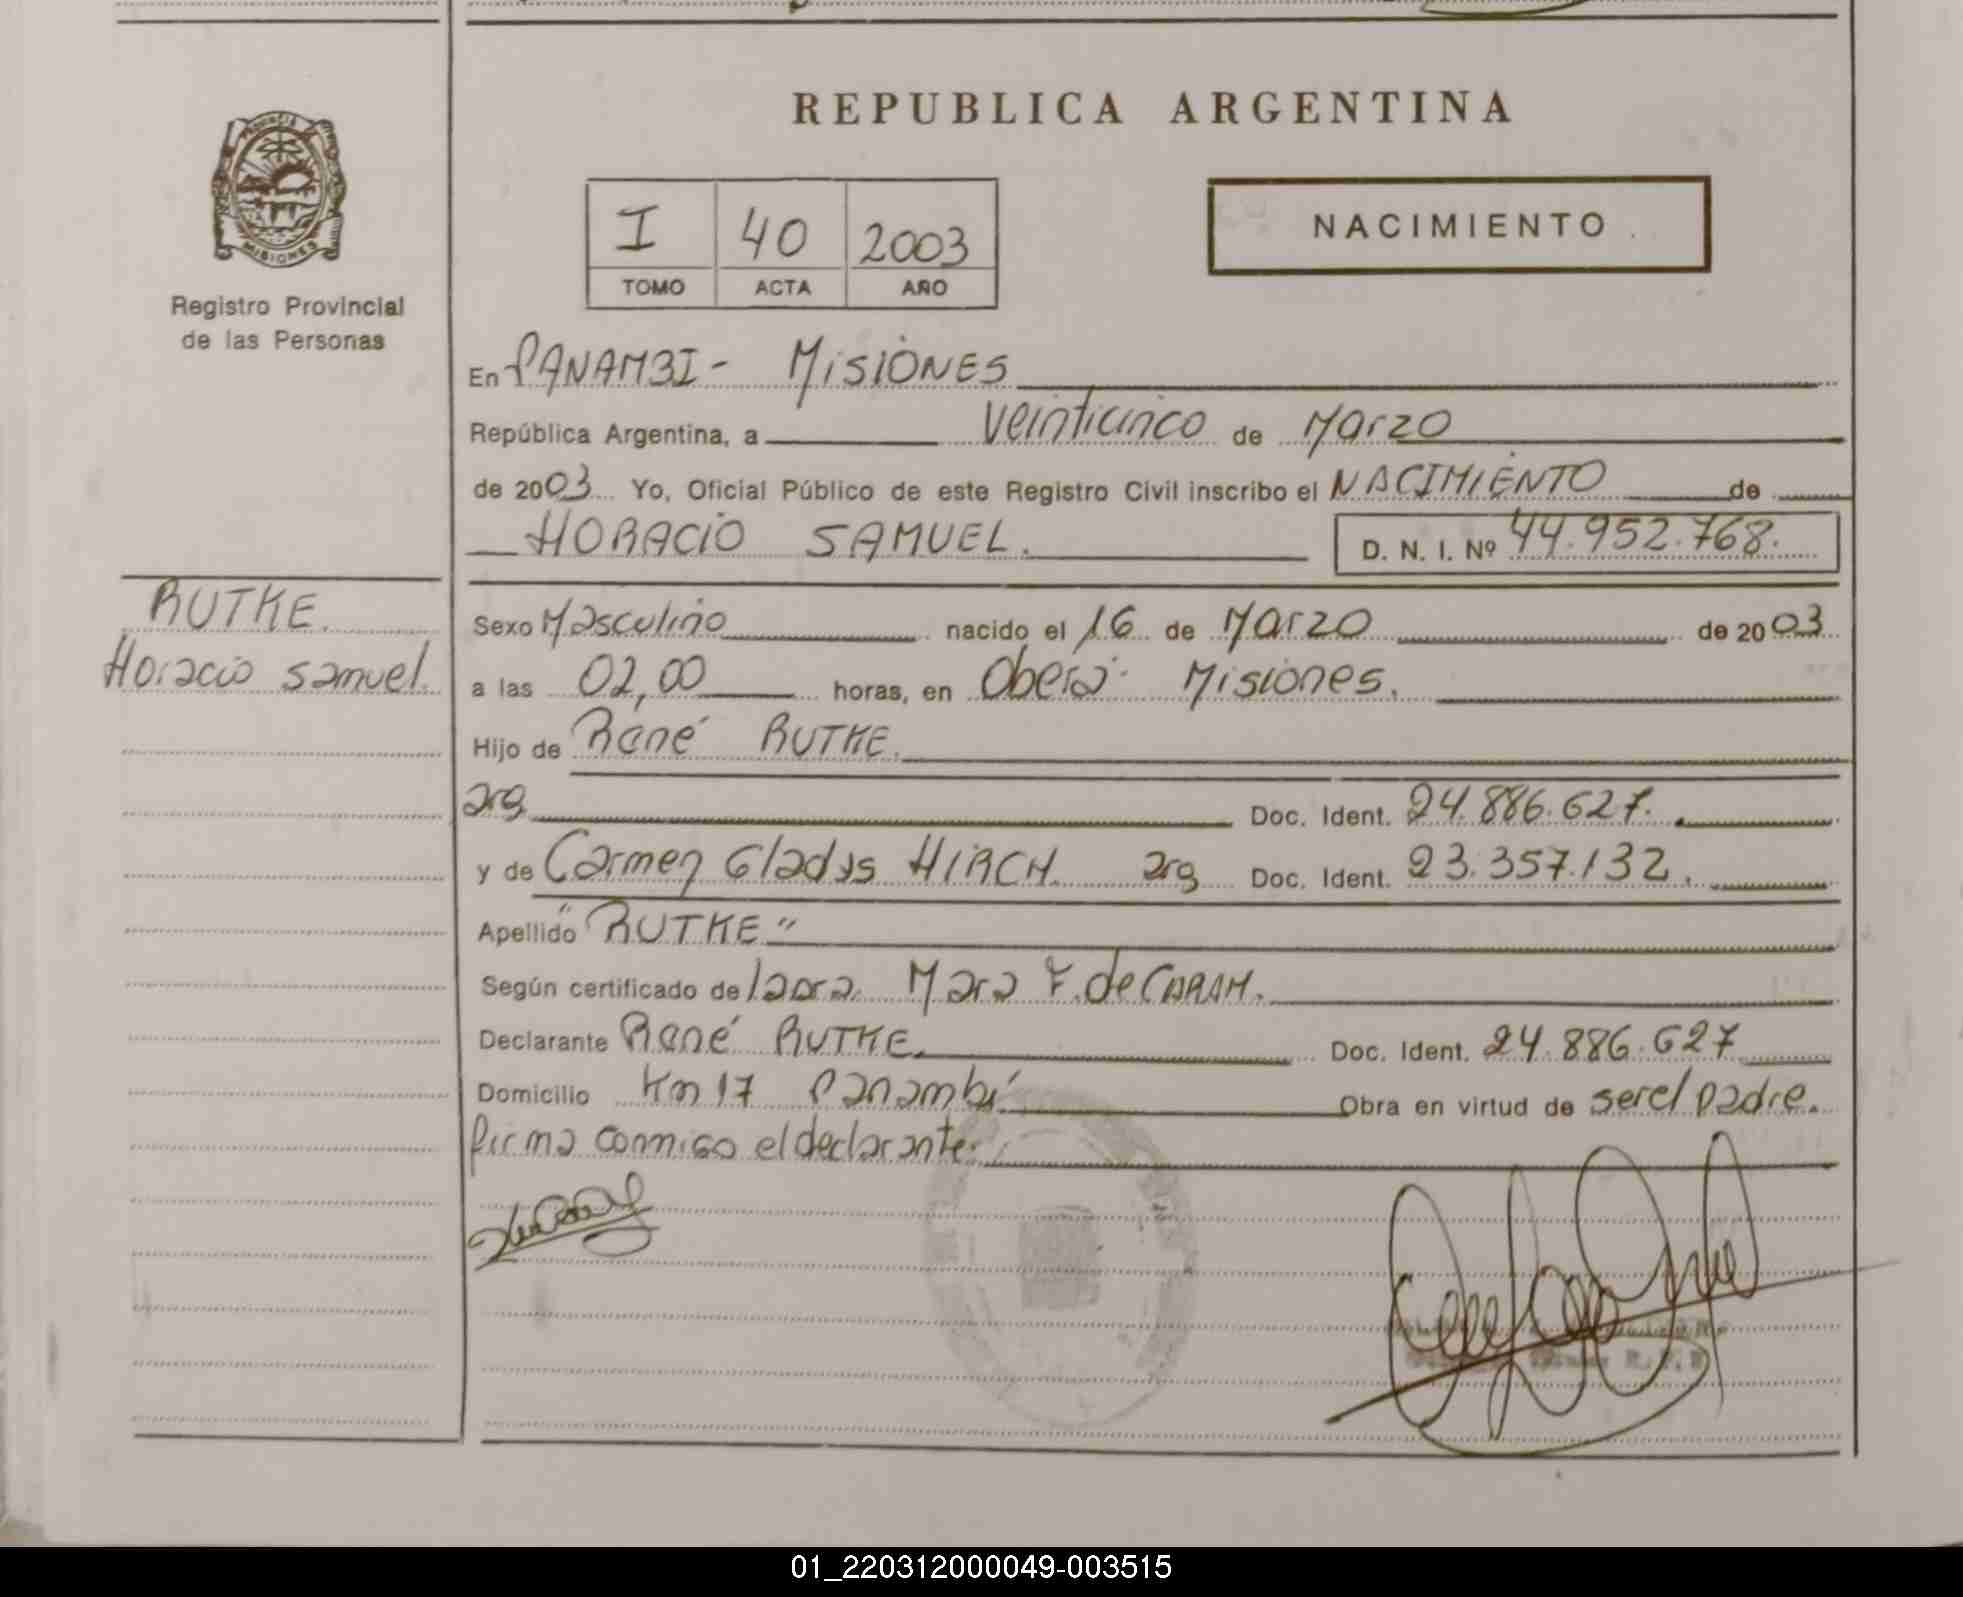 REPUBLICA ARGENTINA
PROVINCIA DE
MISIONES
Registro Provincial
de las Personas
I 40 2003
TOMO ACTA AÑO
NACIMIENTO
En PANAMBI - MISIONES
República Argentina, a veinticinco de Marzo
de 2003 Yo, Oficial Público de este Registro Civil inscribo el NACIMIENTO de
HORACIO SAMUEL. D. N. I. Nº 44.952.768.
RUTKE.
Horacio Samuel.
Sexo Masculino nacido el 16 de Marzo de 2003
a las 02,00 horas, en Oberá Misiones.
Hijo de René RUTKE.
arg Doc. Ident. 24.886.627.
y de Carmen Gladys HIRCH. arg Doc. Ident. 23.357.132.
Apellido "RUTKE"
Según certificado de la Dra. Mara F. de CARAM.
Declarante René RUTKE. Doc. Ident. 24.886.627
Domicilio Km 17 Panambí Obra en virtud de ser el padre.
firma conmigo el declarante.
01_220312000049-003515